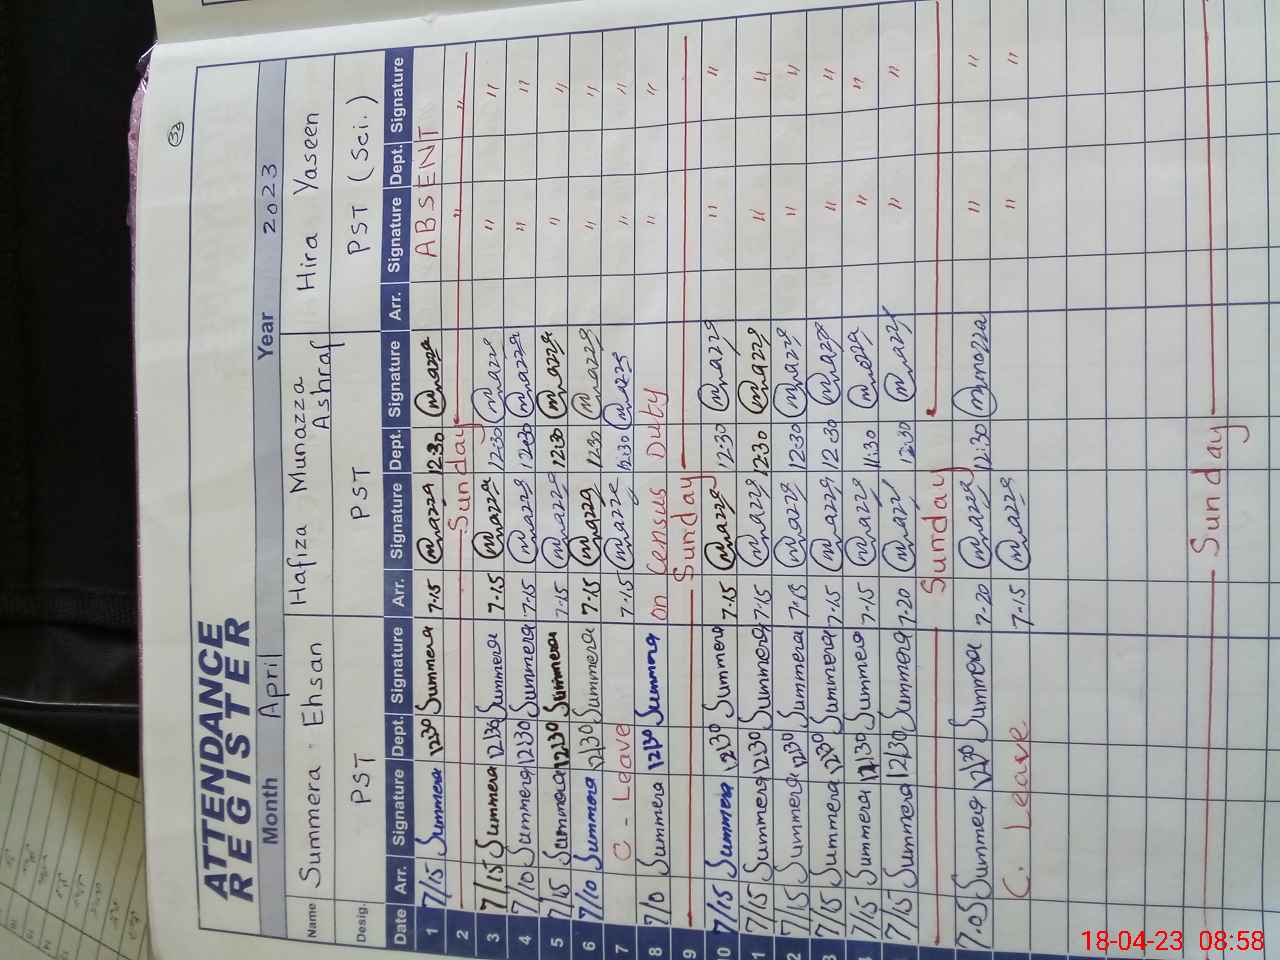 32
ATTENDANCE
REGISTER
Month April Year 2023
Name Summera Ehsan Hafiza Munazza Ashraf Hira Yaseen
Desig. PST PST PST (Sci.)
Date Arr. Signature Dept. Signature Arr. Signature Dept. Signature Arr. Signature Dept. Signature
1 7/15 Summera 12:30 Summera 7-15 Munazza 12:30 Munazza ABSENT
2 Sunday " "
3 7/15 Summera 12:30 Summera 7-15 Munazza 12:30 Munazza " "
4 7/10 Summera 12:30 Summera 7-15 Munazza 12:30 Munazza " "
5 7/15 Summera 12:30 Summera 7-15 Munazza 12:30 Munazza " "
6 7/10 Summera 12:30 Summera 7-15 Munazza 12:30 Munazza " "
7 C - Leave 7-15 Munazza 12:30 Munazza " "
8 7/10 Summera 12:30 Summera on Census Duty " "
9 Sunday
10 7/15 Summera 12:30 Summera 7-15 Munazza 12:30 Munazza " "
1 7/15 Summera 12:30 Summera 7-15 Munazza 12:30 Munazza " "
2 7/15 Summera 12:30 Summera 7-15 Munazza 12:30 Munazza " "
3 7/15 Summera 12:30 Summera 7-15 Munazza 12:30 Munazza " "
7/15 Summera 12:30 Summera 7-15 Munazza 11:30 Munazza " "
7/15 Summera 12:30 Summera 7-20 Munazza 12:30 Munazza " "
Sunday
7-05 Summera 12:30 Summera 7-20 Munazza 12:30 Munazza " "
C. Leave 7-15 Munazza " "
Sunday
18-04-23 08:58